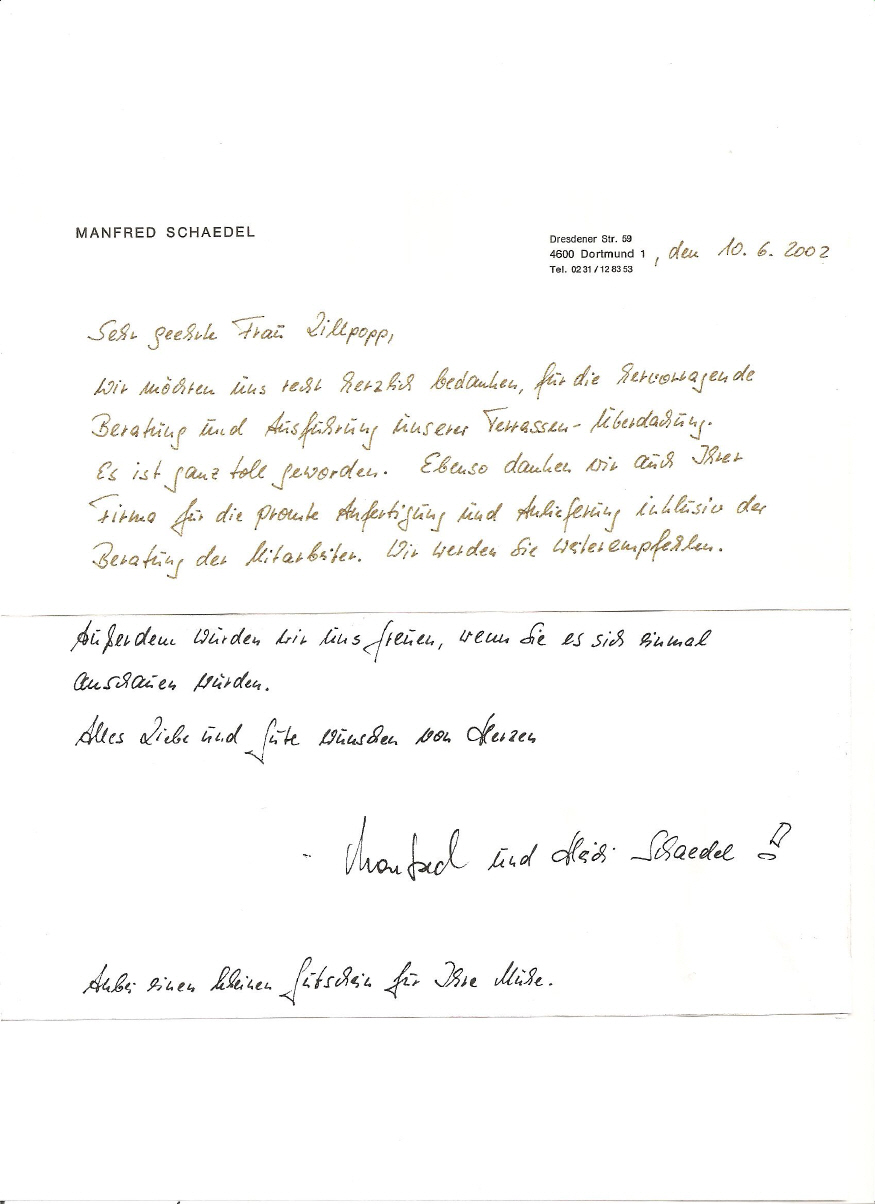 MANFRED SCHAEDEL
Dresdener Str. 59
4600 Dortmund 1, den 10. 6. 2002
Tel. 0231/128353
Sehr geehrte Frau Lillpopp,
Wir möchten uns recht herzlich bedanken, für die hervorragende
Beratung und Ausführung unserer Terrassen-Überdachung.
Es ist ganz toll geworden. Ebenso danken wir auch Ihrer
Firma für die promte Anfertigung und Anlieferung inklusiv der
Beratung der Mitarbeiter. Wir werden Sie weiterempfehlen.
Außerdem würden wir uns freuen, wenn Sie es sich einmal
anschauen würden.
Alles Liebe und Gute wünschen von Herzen
- Manfred und Heidi Schaedel!
Anbei einen kleinen Gutschein für Ihre Mühe.